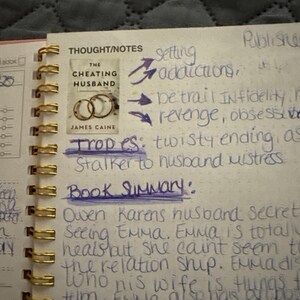 THOUGHT/NOTES
Publishe
THE
CHEATING
HUSBAND
JAMES CAINE
setting
addictions,
betrail Infidelity,
revenge, obsess
Tropes: twisty ending, as
Stalker to husband mistress
Book Summary:
Owen Karens husband secret
Seeing Emma. Emma is total
heals but she cant seem t
the relation ship. Emma dis
who his wife is. Hungs